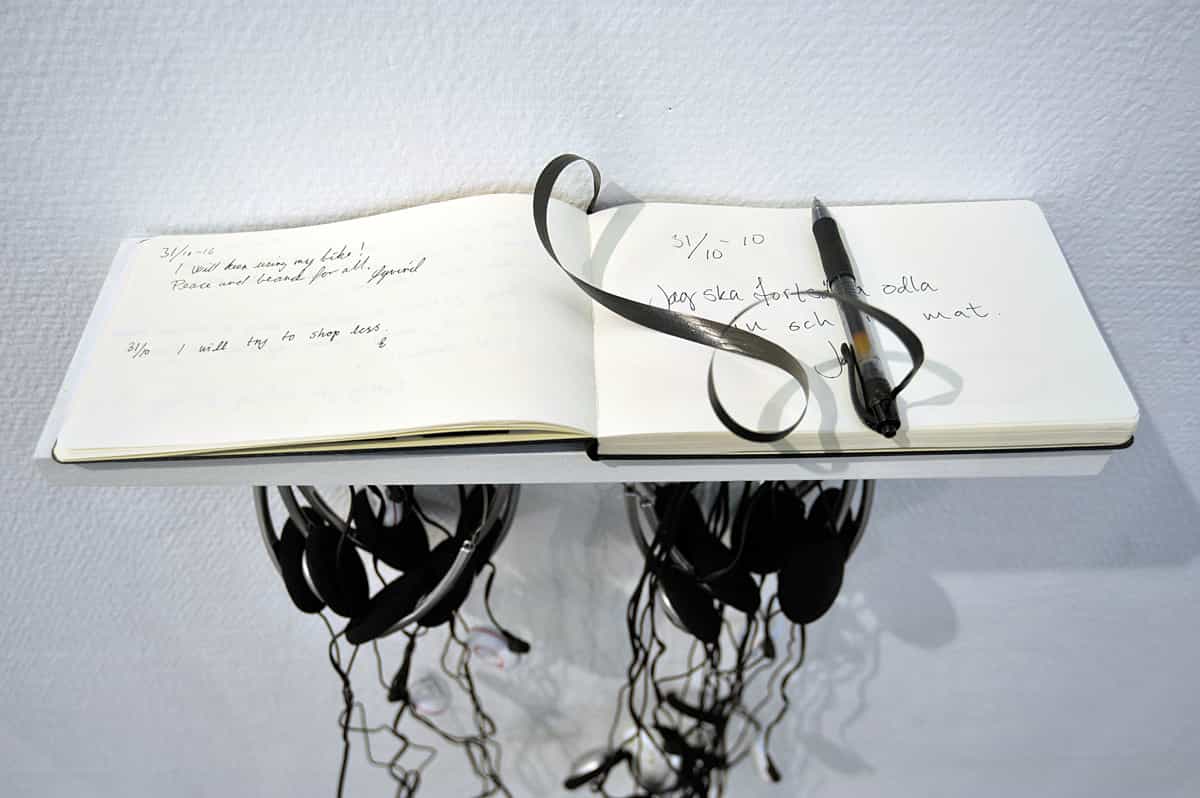 31/10-10
I will keep using my bike!
Peace and beards for all. Øyvind
31/10 I will try to shop less.
31/10-10
Jag ska fortsätta odla
och mat.